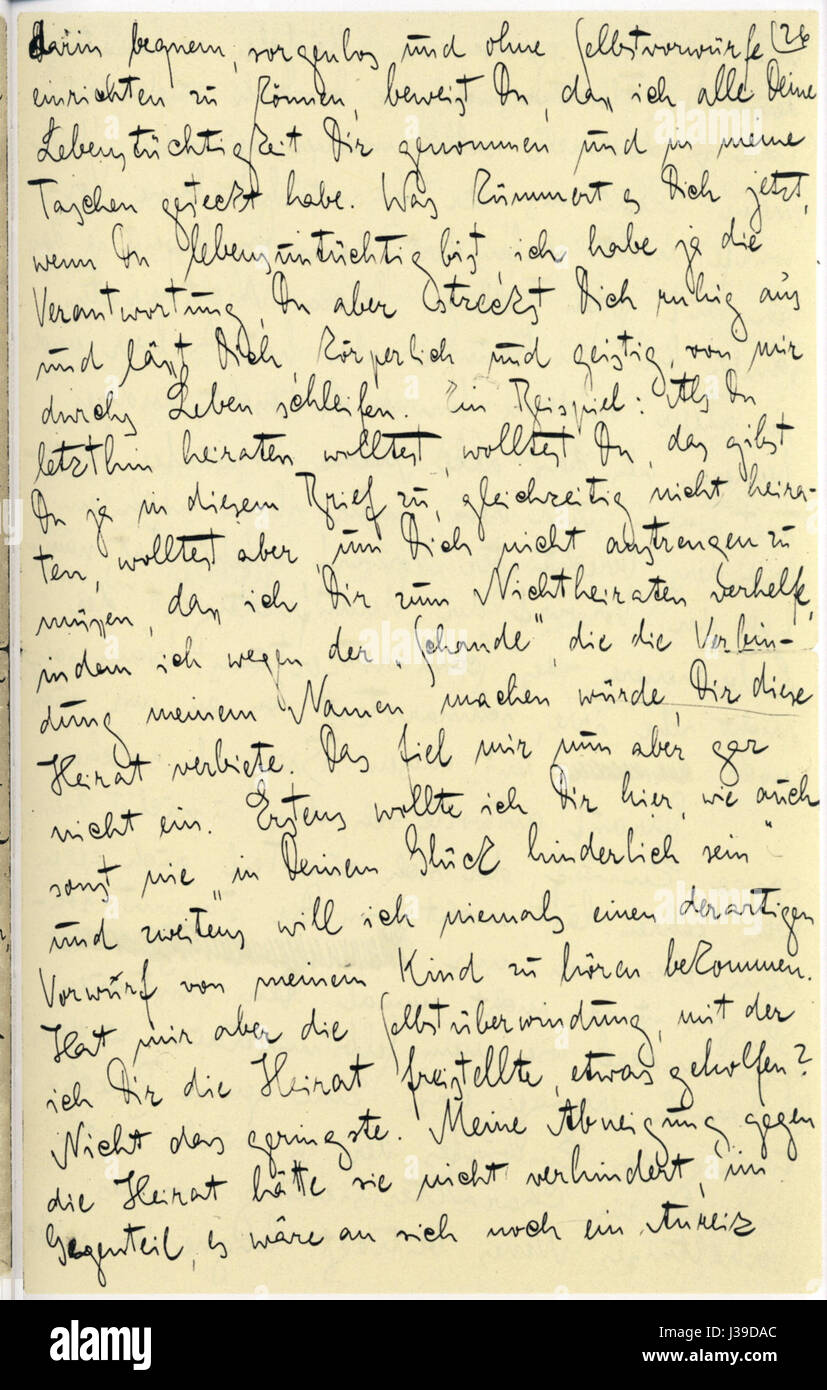 darin bequem, sorgenlos und ohne Selbstvorwürfe (26
einrichten zu können, beweist Du, dass ich alle Deine
Lebenstüchtigkeit Dir genommen und in meine
Taschen gesteckt habe. Was kümmert es Dich jetzt,
wenn Du lebensuntüchtig bist, ich habe ja die
Verantwortung, Du aber streckst Dich ruhig aus
und lässt Dich, körperlich und geistig, von mir
durchs Leben schleifen. Ein Beispiel: Als Du
letzthin heiraten wolltest, wolltest Du, das gibst
Du ja in diesem Brief zu, gleichzeitig nicht heira-
ten, wolltest aber, um Dich nicht anstrengen zu
müssen, dass ich Dir zum Nichtheiraten verhelfe,
indem ich wegen der „Schande“, die die Verbin-
dung meinem Namen machen würde, Dir diese
Heirat verbiete. Das fiel mir nun aber gar
nicht ein. Erstens wollte ich Dir hier, wie auch
sonst nie „in Deinem Glück hinderlich sein“
und zweitens will ich niemals einen derartigen
Vorwurf von meinem Kind zu hören bekommen.
Hat mir aber die Selbstüberwindung, mit der
ich Dir die Heirat freistellte, etwas geholfen?
Nicht das geringste. Meine Abneigung gegen
die Heirat hätte sie nicht verhindert, im
Gegenteil, es wäre an sich noch ein Anreiz
alamy
Image ID: J39DAC
www.alamy.com